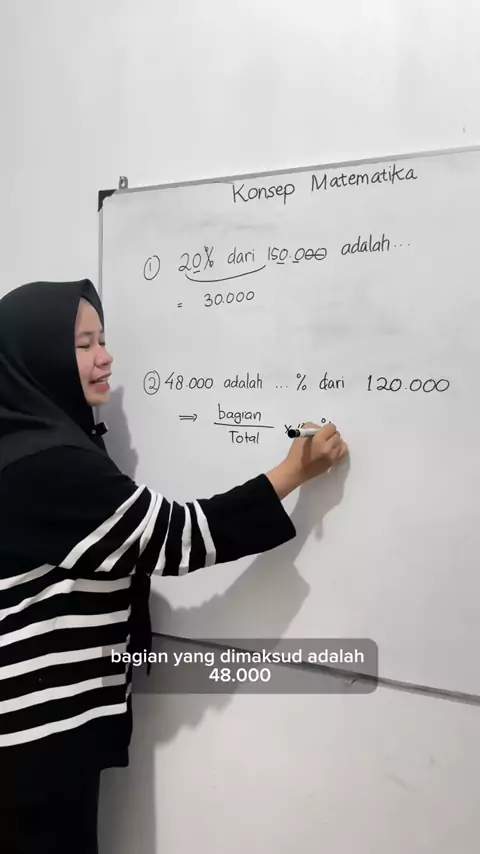 Konsep Matematika
① 20% dari 150.000 adalah...
= 30.000
② 48.000 adalah ... % dari 120.000
⇒ bagian
Total
bagian yang dimaksud adalah
48.000